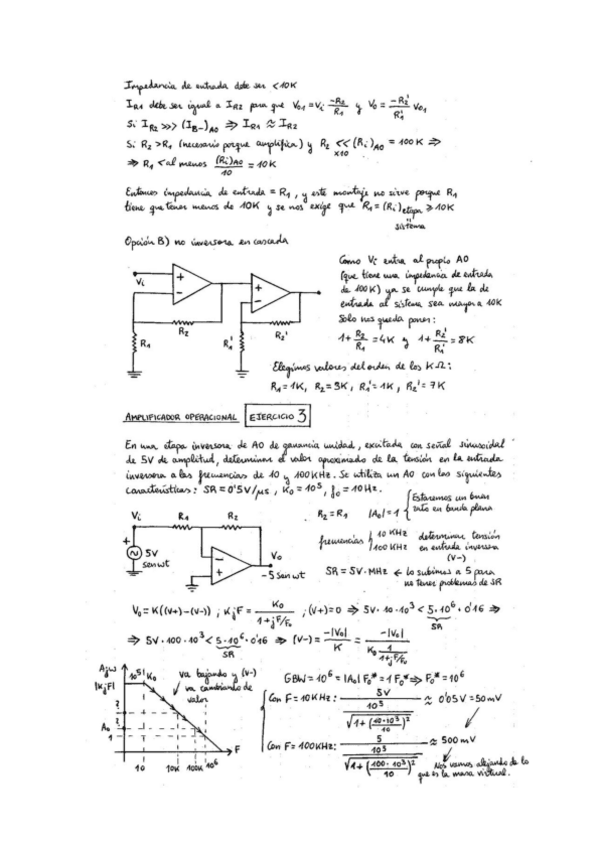 Impedancia de entrada debe ser < 10K
IR1 debe ser igual a IR2 para que Vo1 = Vi -R2/R1 y Vo = -R2'/R1' Vo1
Si IR2 >>> (IB-)AO ⇒ IR1 ≈ IR2
Si R2 > R1 (necesario porque amplifica) y R2 << x10 (Ri)AO = 100K ⇒
⇒ R1 < al menos (Ri)AO/10 = 10K
Entonces impedancia de entrada = R1, y este montaje no sirve porque R1
tiene que tener menos de 10K y se nos exige que R1 = (Ri)etapa ≥ 10K
"
sistema
Opción B) no inversora en cascada
Como Vi entra al propio AO
(que tiene una impedancia de entrada
de 100K) ya se cumple que la de
entrada al sistema sea mayor a 10K
Solo nos queda poner:
1+ R2/R1 = 4K y 1+ R2'/R1' = 8K
Vi
+
-
+
-
R2
R2'
R1
R1'
Elegimos valores del orden de los KΩ:
R1 = 1K, R2 = 3K, R1' = 1K, R2' = 7K
AMPLIFICADOR OPERACIONAL EJERCICIO 3
En una etapa inversora de AO de ganancia unidad, excitada con señal sinusoidal
de 5V de amplitud, determinar el valor aproximado de la tensión en la entrada
inversora a las frecuencias de 10 y 100KHz. Se utiliza un AO con las siguientes
características: SR = 0'5V/μs, Ko = 10⁵, fo = 10Hz.
Vi R1 R2
R2 = R1 |Ao| = 1 { Estaremos un buen
rato en banda plana
frecuencias { 10 KHz
100 KHz
determinar tensión
en entrada inversora
(V-)
+
5V
senwt
-
+
Vo
-5 senwt
SR = 5V·MHz ← lo subimos a 5 para
no tener problemas de SR
Vo = K((V+)-(V-)) ; KjF = Ko/(1+jF/Fo) ; (V+)=0 ⇒ 5V·10·10³ < 5·10⁶·0'16 ⇒
SR
⇒ 5V·100·10³ < 5·10⁶·0'16 ⇒ (V-) = -|Vo|/K = -|Vo|/(Ko 1/(1+jF/Fo))
SR
Ajw
|KjF|
10⁵ Ko
va bajando y (V-)
va cambiando de
valor
?
?
Ao
1
10 10K 100K 10⁶
F
GBW = 10⁶ = |Ao| Fo* = 1 Fo* ⇒ Fo* = 10⁶
Con F = 10KHz: 5V/(10⁵/√(1+(10·10³/10)²)) ≈ 0'05V = 50mV
Con F = 100KHz: 5/(10⁵/√(1+(100·10³/10)²)) ≈ 500mV
Nos vamos alejando de lo
que es la masa virtual.